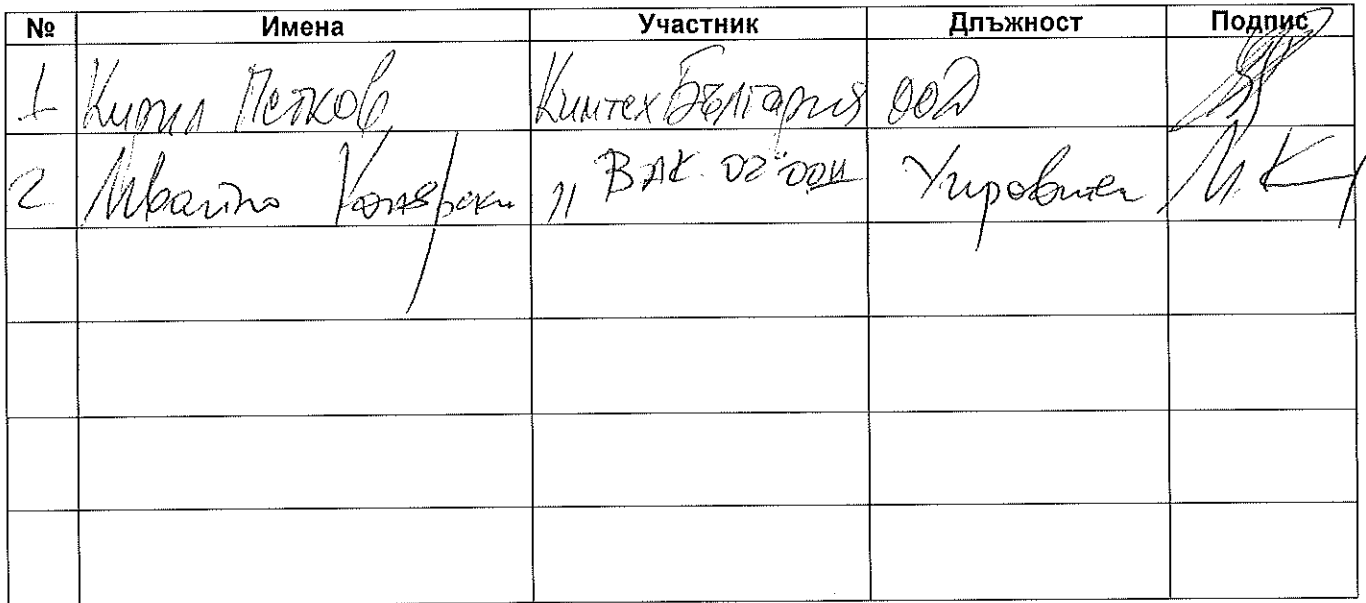 № Имена Участник Длъжност Подпис
1 Кирил Петков Кимтех България ООД
2 Ивайло „ВАК-02" ООД Управител